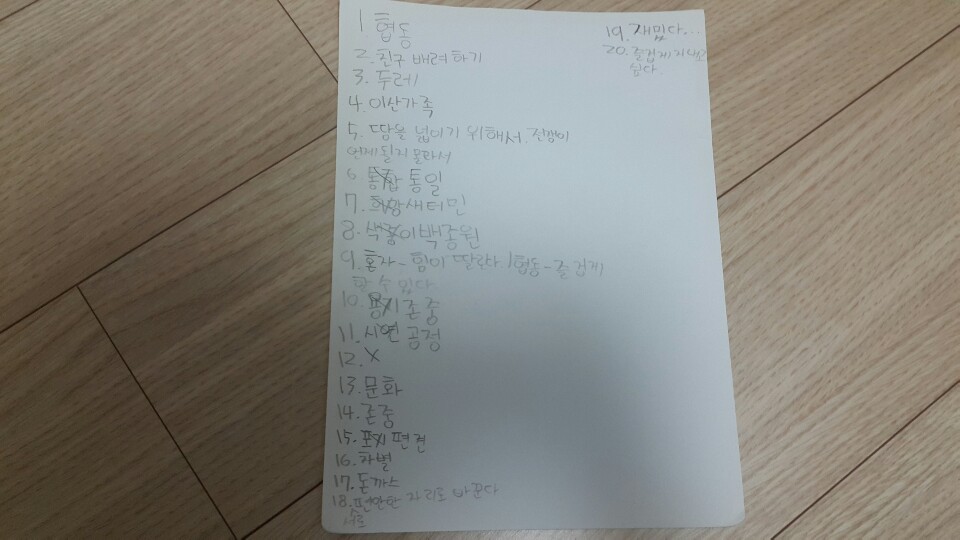 1 협동
2. 친구 배려하기
3. 두레
4. 이산가족
5. 땅을 넓이기 위해서. 전쟁이
언제될지 몰라서
6 통합 통일
7. 새터민
8. 색종이 백종원
9. 혼자-힘이 딸린다 / 협동-즐겁게
할 수 있다.
10. 존중
11. 시연 공정
12. X
13. 문화
14. 존중
15. 편견
16. 차별
17. 돈까스
18. 편안한 자리로 바꾼다
19. 재밌다...
20. 즐겁게 지내고
싶다.